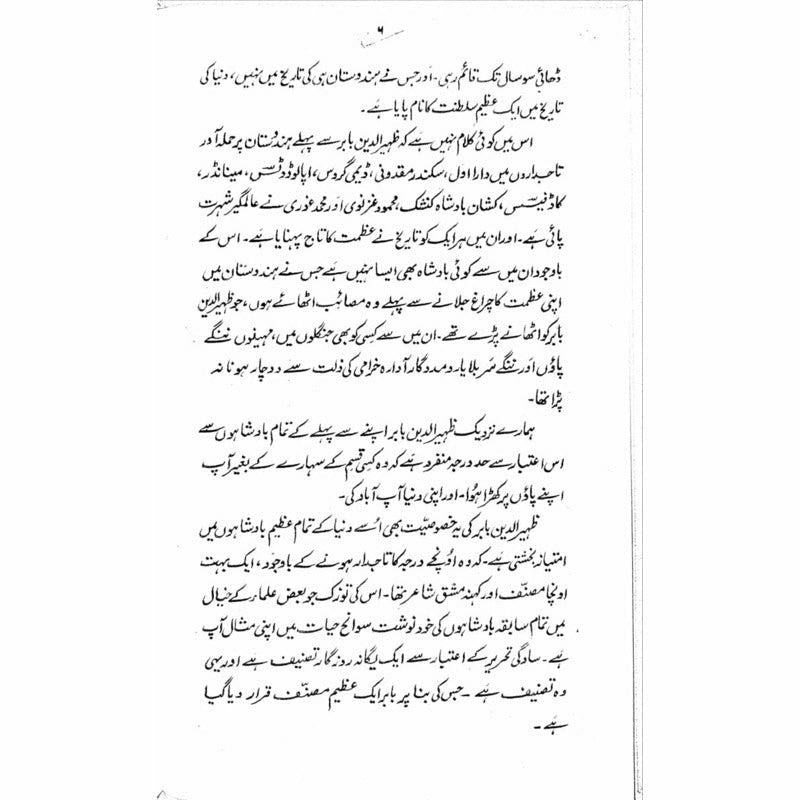 ۶
ڈھائی سو سال تک قائم رہی۔ اور جس نے ہندوستان ہی کی تاریخ میں نہیں، دنیا کی
تاریخ میں ایک عظیم سلطنت کا نام پایا ہے۔
اس میں کوئی کلام نہیں ہے کہ ظہیرالدین بابر سے پہلے ہندوستان پر حملہ آور
تاجداروں میں دارا اول، سکندر مقدونی، ڈیمی گروس، اپالوڈوٹس، مینانڈر،
کاڈفیسس، کشان بادشاہ کنشک، محمود غزنوی اور محمد غوری نے عالمگیر شہرت
پائی ہے۔ اور ان میں ہر ایک کو تاریخ نے عظمت کا تاج پہنایا ہے۔ اس کے
باوجود ان میں سے کوئی بادشاہ بھی ایسا نہیں ہے جس نے ہندوستان میں
اپنی عظمت کا چراغ جلانے سے پہلے وہ مصائب اٹھائے ہوں، جو ظہیرالدین
بابر کو اٹھانے پڑے تھے۔ ان میں سے کسی کو بھی جنگلوں میں، مہینوں ننگے
پاؤں اور ننگے سر بلا یار و مددگار آوارہ خرامی کی ذلت سے دوچار ہونا نہ
پڑا تھا۔
ہمارے نزدیک ظہیرالدین بابر اپنے سے پہلے کے تمام بادشاہوں سے
اس اعتبار سے حد درجہ منفرد ہے کہ وہ کسی قسم کے سہارے کے بغیر آپ
اپنے پاؤں پر کھڑا ہُوا۔ اور اپنی دنیا آپ آباد کی۔
ظہیرالدین بابر کی یہ خصوصیّت بھی اُسے دنیا کے تمام عظیم بادشاہوں میں
امتیاز بخشتی ہے۔ کہ وہ اونچے درجہ کا تاجدار ہونے کے باوجود، ایک بہت
اونچا مصنّف اور کہنہ مشق شاعر تھا۔ اس کی توزک جو بعض علماء کے خیال
میں تمام سابقہ بادشاہوں کی خود نوشت سوانح حیات میں اپنی مثال آپ
ہے۔ سادگی تحریر کے اعتبار سے ایک یگانہ روزگار تصنیف ہے اور یہی
وہ تصنیف ہے۔ جس کی بنا پر بابر ایک عظیم مصنّف قرار دیا گیا
ہے۔